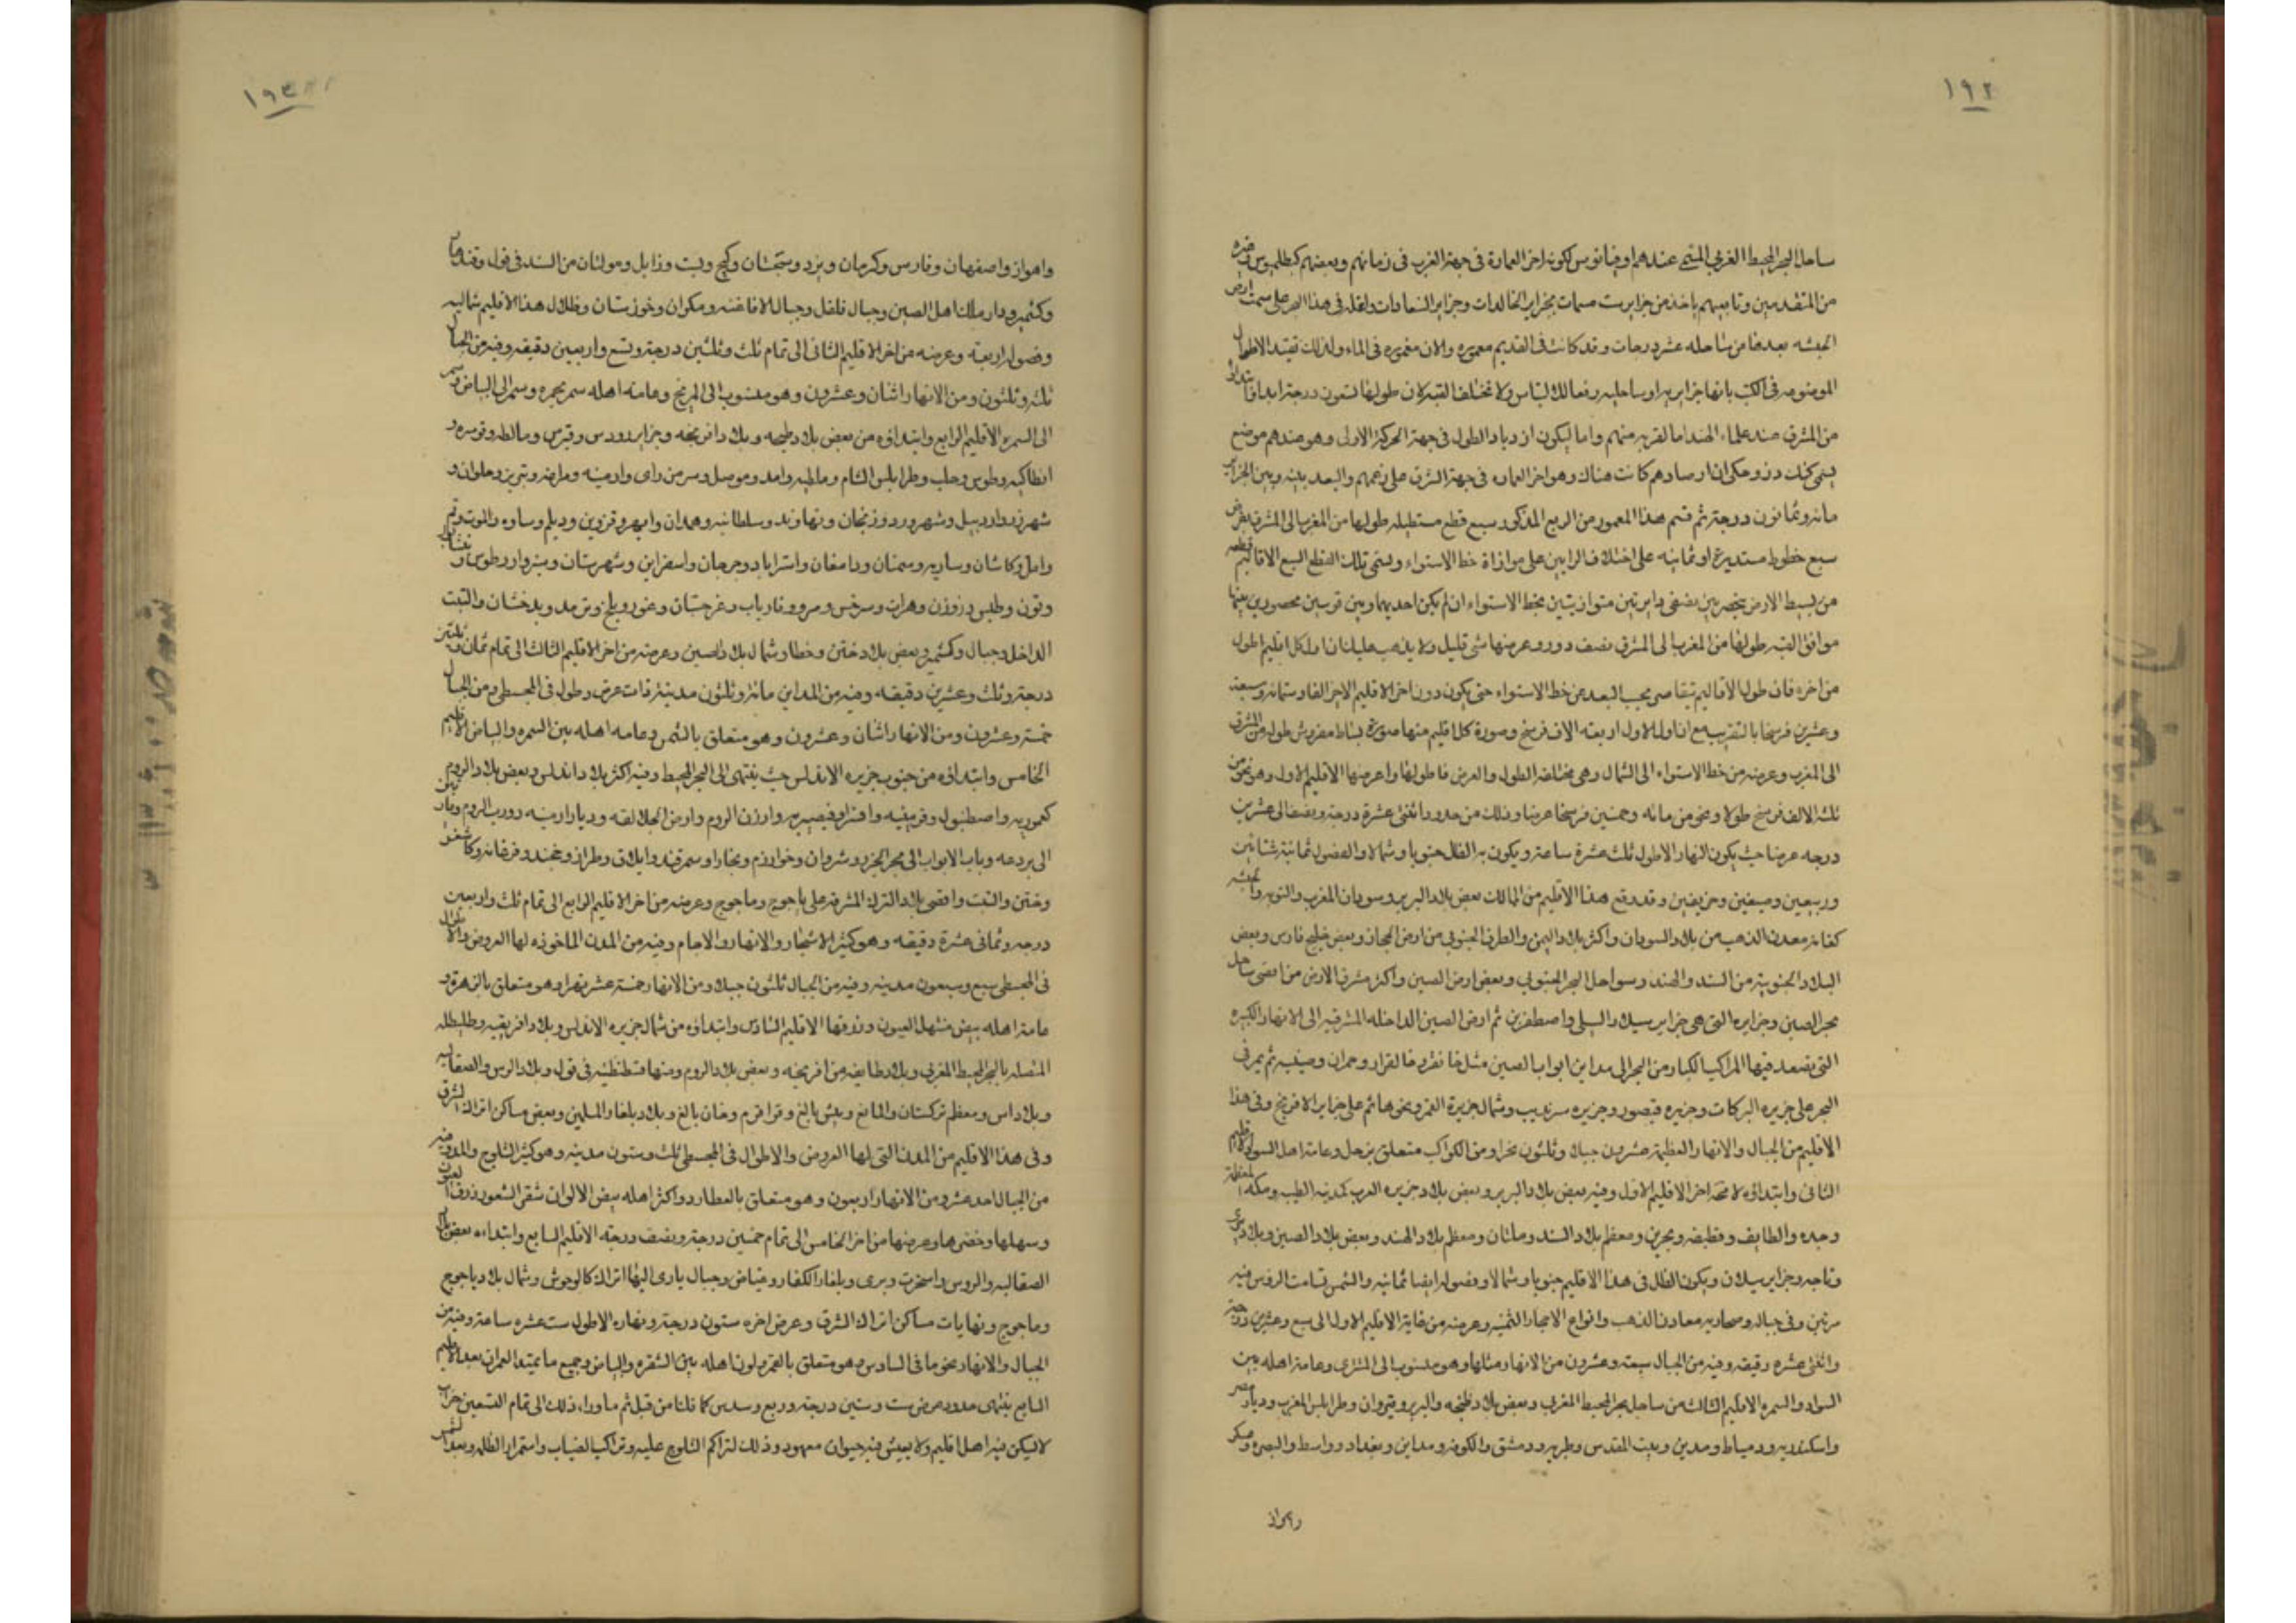 ١٩٢
ساحل البحر المحيط الغربي المسمى عندهم اوقيانوس لكونه اخر العمارة فى جهة الغرب فى زمانهم وبعضهم كبطلميوس وغيره
من المتقدمين وتابعيهم ياخذ من جزاير ست مسمات بجزاير الخالدات وجزاير السعادات واقعة فى هذا البحر على سمت ارض
الحبشه بعدها من ساحله عشر درجات وقد كانت فى القديم معموره والان مغموره فى الماء ولذلك تقيد الاطوال
الموضوعه فى الكتب بانها جزايريه او ساحليه رفعا للالتباس ولا تختلف القبة لان طولها تسعون درجة ابدا وابتداؤ
من المشرق عند علماء الهند اما لقربه منهم واما ليكون ازدياد الطول فى جهة الحركة الاولى وهو عندهم موضع
يسمى كنك دز وحكى ان ارصادهم كانت هناك وهو اخر العماره فى جهة الشرق على زعمهم والبعد بينه وبين الجزاير
مائة وثمانون درجة ثم قسم هذا المعمور من الربع المذكور سبع قطع مستطيله طولها من المغرب الى المشرق بفرض
سبع خطوط مستديرة او ثمانيه على اختلاف الرايين على موازاة خط الاستواء وتسمى تلك القطع السبع الاقاليم
من بسيط الارض ينحصر بين نصفى دايرتين متوازيتين بخط الاستواء ان لم يكن احديهما وبين قوسين محصورين بينهما
موافق القبه طولها من المغرب الى المشرق نصف دور وعرضها شى قليل ولا يذهب عليك ان اول كل اقليم اطول
من اخره فان طول الاقاليم تتقاصر بحسب البعد عن خط الاستواء حتى يكون دون اخر الاقليم الاخر الفا وستمائة وسبعة
وعشرين فرسخا بالتقريب مع ان اول الاول اربعة الاف فرسخ وصورة كل اقليم منها صورة بساط مفروش طوله من المشرق
الى المغرب وعرضه من خط الاستواء الى الشمال وهى مختلفة الطول والعرض فاطولها واعرضها الاقليم الاول وهو نحو من
ثلث الالف فرسخ طولا ونحو من مائه وخمسين فرسخا عرضا وذلك من حدود اثنتى عشرة درجة ونصف الى عشرين
درجه عرضا حيث يكون النهار الاطول ثلث عشرة ساعة ويكون به الظل جنوبا وشمالا والفصول ثمانية شتائين
وربيعين وصيفين وخريفين وقد وقع هذا الاقليم من الممالك بعض بلاد البربر وسودان المغرب والنوبه والحبشه
كغانه معدن الذهب من بلاد السودان واكثر بلاد اليمن والطرف الجنوبى من ارض الحجاز وبعض خليج فارس وبعض
البلاد الجنوبية من السند والهند وسواحل البحر الجنوبى وبعض ارض الصين واكثر مشرق الارض من اقصى ساحل
بحر الصين وجزايره التى هى جزاير سيلا والسيلى واصطفرين ثم ارض الصين الداخله المشرقيه الى الانهار الكبيره
التى تصعد فيها المراكب الكبار من البحر الى مداين ابواب الصين مثل خانقو وخانقرار وحمران وصينيه ثم يمر فى
البحر على جزيره البركات وجزيره قيصور وجزيره سرنديب وشمال جزيرة القمر ونحو هائم على جزاير الافرنج وفى هذا
الاقليم من الجبال والانهار العظيمة عشرون جبلا وثلثون نهرا ومن الكواكب متعلق بزحل وعامة اهل السودان الاقليم
الثانى وابتداؤه لا محة اخر الاقليم الاول وفيه بعض بلاد البربر وبعض بلاد جزيره العرب كمدينه الطيب ومكه المعظمة
وجده والطايف وقطيف وبحرين ومعظم بلاد السند وملتان ومعظم بلاد الهند وبعض بلاد الصين وبلاد
وتاجه وجزاير سيلان ويكون الظل فى هذا الاقليم جنوبا وشمالا وفصوله ايضا ثمانيه والشمس تسامت الروس فيه
مرتين وفى جباله وصحاريه معادن الذهب وانواع الاحجار الثمينه وعرضه من غاية الاقليم الاول الى سبع وعشرين درجة
واثنتى عشره دقيقه وفيه من الجبال سبعة وعشرون من الانهار مثلها وهو منسوب الى المشترى وعامة اهله بين
السواد والسمره الاقليم الثالث من ساحل بحر المحيط المغربى وبعض بلاد طنجه والبربر وقيروان وطرابلس المغرب وديار مصر
واسكندريه ودمياط ومدين وبيت المقدس وطبريه ودمشق والكوفه ومداين وبغداد وواسط والبصره وعسكر
واهواز
١٩٣
واهواز واصفهان وفارس وكرمان ويزد وسجستان وكيج وبست وزابل ومولتان من السند فى قول وقندهار
وكشمير ودار ملك اهل الصين وجبال قلقل وجبال الافاغنه ومكران وخوزستان وظلال هذا الاقليم شماليه
وفصوله اربعة وعرضه من اخر الاقليم الثانى الى تمام ثلث وثلثين درجة وتسع واربعين دقيقه وفيه من الجبال
ثلثه وثلثون ومن الانهار اثنان وعشرون وهو منسوب الى المريخ وعامة اهله سمر بحمره وسمر الى البياض وسمر
الى السمره الاقليم الرابع وابتداؤه من بعض بلاد طنجه وبلاد افرنجه وجزاير رودس وقبرس ومالطه وقوسره و
انطاكيه وطرسوس وحلب وطرابلس الشام وماطيه وامد وموصل وسر من راى وارمينه ومراغه وتبريز وحلوان و
شهرزور واردبيل وشهرورد وزنجان ونهاوند وسلطانيه وهمدان وابهر وقزوين وديلم وساوه والموت وقم
وامل وكاشان وساريه وسمنان ودامغان واستراباد وجرجان واسفراين وشهرستان وسبزوار وطوس ونيشابور
وتون وطبس وزوزن وهراة وسرخس ومرو وفارياب وغرجستان وغور وبلخ وترمد وبدخشان والتبت
الداخل وجبال وكشمير وبعض بلاد ختن وخطا وشمال بلاد الصين وعرضه من اخر الاقليم الثالث الى تمام ثمان وثلثين
درجة وثلث وعشرين دقيقه وفيه من المداين مائة وثلثون مدينة ذات عرض وطول فى المجسطى ومن الجبال
خمسة وعشرون ومن الانهار اثنان وعشرون وهو متعلق بالشمس وعامه اهله بين السمره والبياض الاقليم
الخامس وابتداؤه من جنوب جزيره الاندلس حيث ينتهى الى البحر المحيط وفيه اكثر بلاد اندلس وبعض بلاد الروم
كعموريه واصطنبول وقونيه واقسرا وقيصريه وارزن الروم وارض الجلالقه وديار ارمينه ودرب الروم وبلاد
الى بردعه وباب الابواب الى بحر الخزر وشروان وخوارزم وبخارا وسمرقند وايلاق وطراز وخجند وفرغانه وكاشغر
وختن والتبت واقصى بلاد الترك المشرقة على ياجوج وماجوج وعرضه من اخر الاقليم الرابع الى تمام ثلث واربعين
درجه وثمانى عشرة دقيقه وهو كثير الاشجار والانهار والاجام وفيه من المدن الماخوذه لها العروض والاطوال
فى المجسطى سبع وسبعون مدينه وفيه من الجبال ثلثون جبلا ومن الانهار خمسة عشر نهرا وهو متعلق بالزهرة و
عامة اهله بيض شهل العيون وزرقها الاقليم السادس وابتداؤه من شمال جزيره الاندلس وبلاد افريقيه وطليطله
المتصله بالبحر المحيط المغربى وبلاد طايفه من افرنجه وبعض بلاد الروم ومنها قسطنطنيه فى قول وبلاد الرس والصقالبه
وبلاد اس ومعظم تركستان والمالغ وبيش بالغ وقراقرم وخان بالغ وبلاد بلغار المسلمين وبعض مساكن اتراك الشرق
وفى هذا الاقليم من المدن التى لها العروض والاطوال فى المجسطى ثلث وستون مدينه وهو كثير الثلوج والمدن وفيه
من الجبال احد عشر ومن الانهار اربعون وهو متعلق بالعطارد واكثر اهله بيض الالوان شقر الشعور زرق العيون
وسهلها وخضرها وعرضها من اخر الخامس الى تمام خمسين درجة ونصف درجه الاقليم السابع وابتداءه بعض بلاد
الصقالبه والروس واسخرت وبرى وبلغار الكفار وغياض وجبال ياوى اليها اتراك كالوحوش وشمال بلاد ياجوج
وماجوج ونهايات مساكن اتراك الشرق وعرض اخره ستون درجة ونهاره الاطول ست عشره ساعة وفيه من
الجبال والانهار نحو ما فى السادس وهو متعلق بالقمر ولون اهله بين الشقره والبياض وجميع ما يمتد العمران بعد الاقليم
السابع ينتهى حدود عرض ست وستين درجة وربع وسدس كما قلنا من قبل ثم ما وراء ذلك الى تمام التسعين خراب
لا يسكن فيه اهل اقليم ولا يعيش فيه حيوان معهود وذلك لتراكم الثلوج عليه وتراكب الضباب واستمرار الظلمه وبعد الشمس